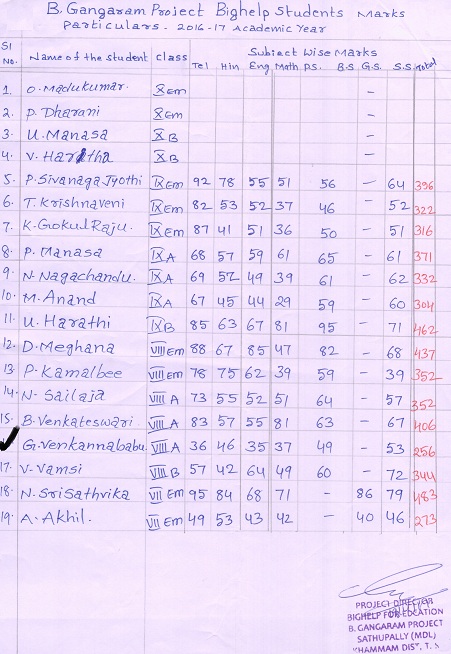 B. Gangaram Project Bighelp Students Marks
Particulars. 2016-17 Academic Year
Sl No. Name of the student Class Subject Wise Marks
Tel Hin Eng Math PS. B.S G.S. S.S Total
1. O. Madukumar. X Em -
2. P. Dharani X Em -
3. U. Manasa X B -
4. V. Haritha X B -
5. P. Sivanaga Jyothi IX Em 92 78 55 51 56 - 64 396
6. T. Krishnaveni IX Em 82 53 52 37 46 - 52 322
7. K. Gokul Raju. IX Em 87 41 51 36 50 - 51 316
8. P. Manasa IX A 68 57 59 61 65 - 61 371
9. N. Nagachandu. IX A 69 52 49 39 61 - 62 332
10. M. Anand IX A 67 45 44 29 59 - 60 304
11. U. Harathi IX B 85 63 67 81 95 - 71 462
12. D. Meghana VIII Em 88 67 85 47 82 - 68 437
13. P. Kamalbee VIII Em 78 75 62 39 59 - 39 352
14. N. Sailaja VIII A 73 55 52 51 64 - 57 352
15. B. Venkateswari. VIII A 83 57 55 81 63 - 67 406
G. Venkannababu. VIII A 36 46 35 37 49 - 53 256
17. V. Vamsi VIII B 57 42 64 49 60 - 72 344
18. N. SriSathvika VII Em 95 84 68 71 - 86 79 483
19. A. Akhil. VII Em 49 53 43 42 - 40 46 273
PROJECT DIRECTOR
BIGHELP FOR EDUCATION
B. GANGARAM PROJECT
SATHUPALLY (MDL)
KHAMMAM DIST, T.S